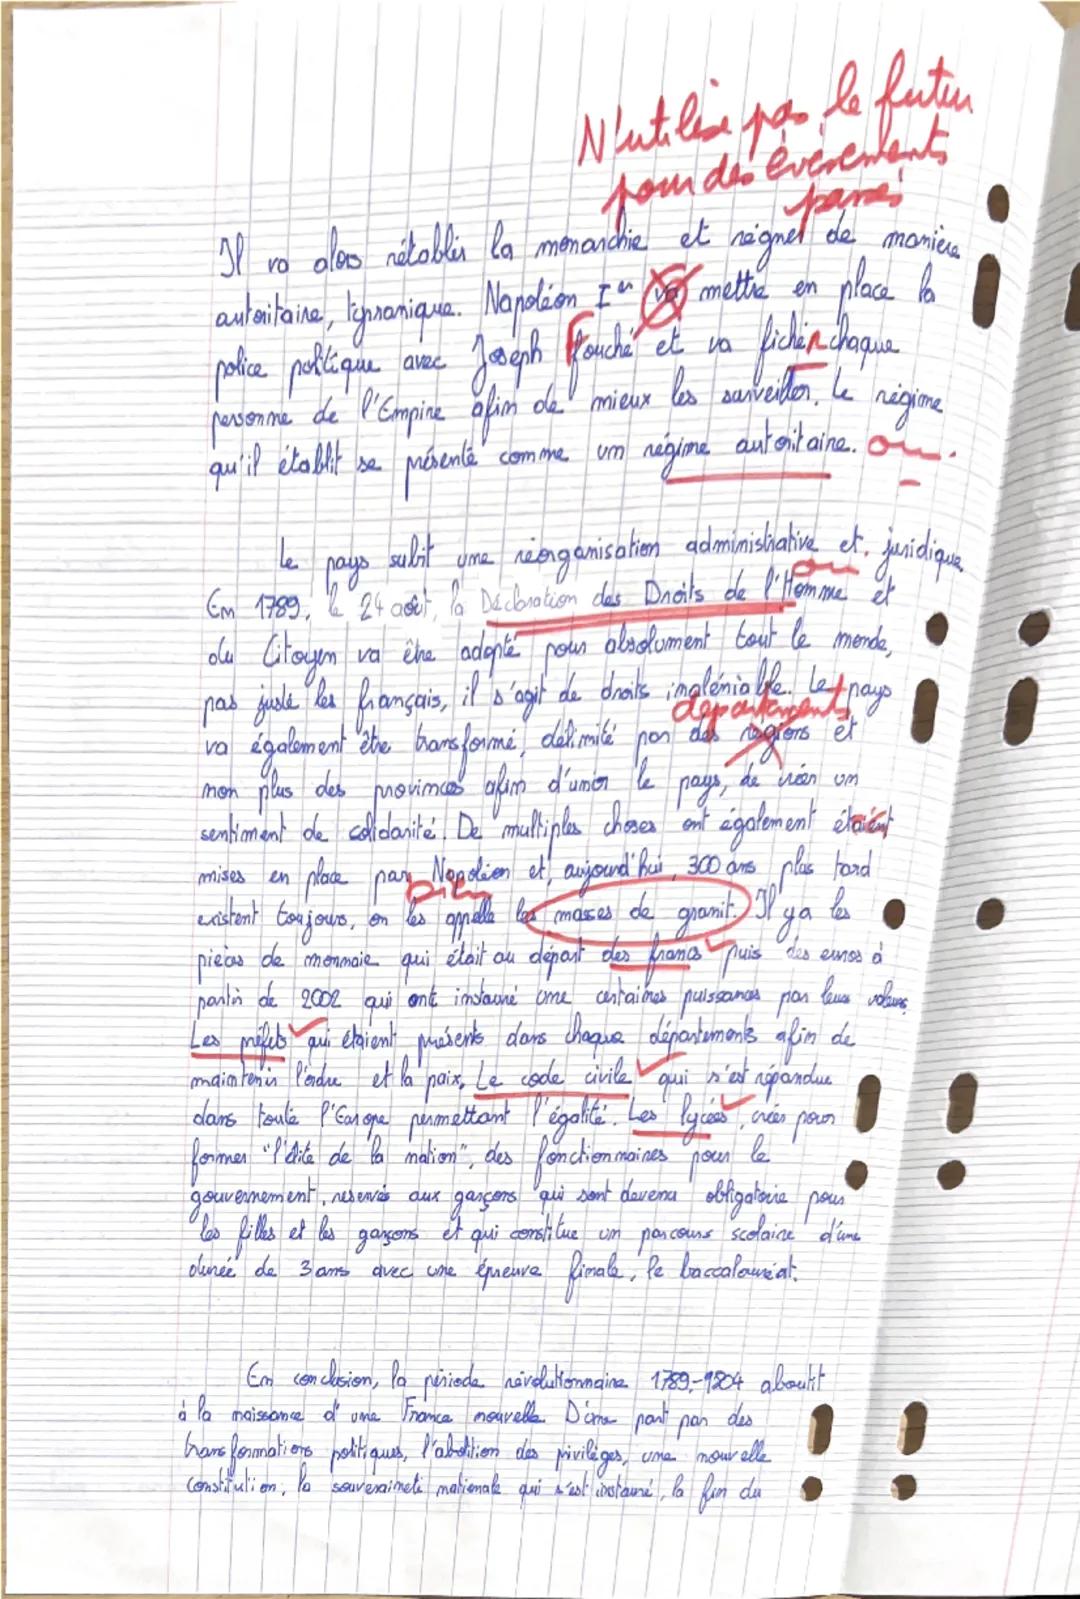 N'utilise pas le futur
pour des évènements
passés
Il va alors rétablir la monarchie et régner de manière
autoritaire, tyranique. Napoléon Ier va mettre en place la
police politique avec Joseph Fouché et va ficher chaque
personne de l'Empire afin de mieux les surveiller. Le régime
qu'il établit se présente comme un régime autoritaire. oui.
Le pays subit une réorganisation administrative et juridique.
oui
En 1789, le 24 août, la Déclaration des Droits de l'Homme et
du Citoyen va être adopté pour absolument tout le monde,
pas juste les français, il s'agit de droits inaléniable. Le pays
départements
va également être transformé, délimité par des régions et
non plus des provinces afin d'unir le pays, de créer un
sentiment de solidarité. De multiples choses ont également étaient
mises en place par Napoléon et, aujourd'hui, 300 ans plus tard
bien
existent toujours, on les appelle les masses de granit. Il y a les
pièces de monnaie qui était au départ des francs puis des euros à
partir de 2002 qui ont instauré une certaines puissances par leurs valeurs.
Les préfets qui étaient présents dans chaque départements afin de
maintenir l'ordre et la paix. Le code civile qui s'est répandue
dans toute l'Europe permettant l'égalité. Les lycées, créés pour
former "l'élite de la nation", des fonctionnaires pour le
gouvernement, reservés aux garçons qui sont devenu obligatoire pour
les filles et les garçons et qui constitue un parcours scolaire d'une
durée de 3 ans avec une épreuve finale, le baccalauréat.
En conclusion, la période révolutionnaire 1789-1804 aboutit
à la naissance d'une France nouvelle. D'une part par des
transformations politiques, l'abolition des privilèges, une nouvelle
constitution, la souveraineté nationale qui s'est instauré, la fin du